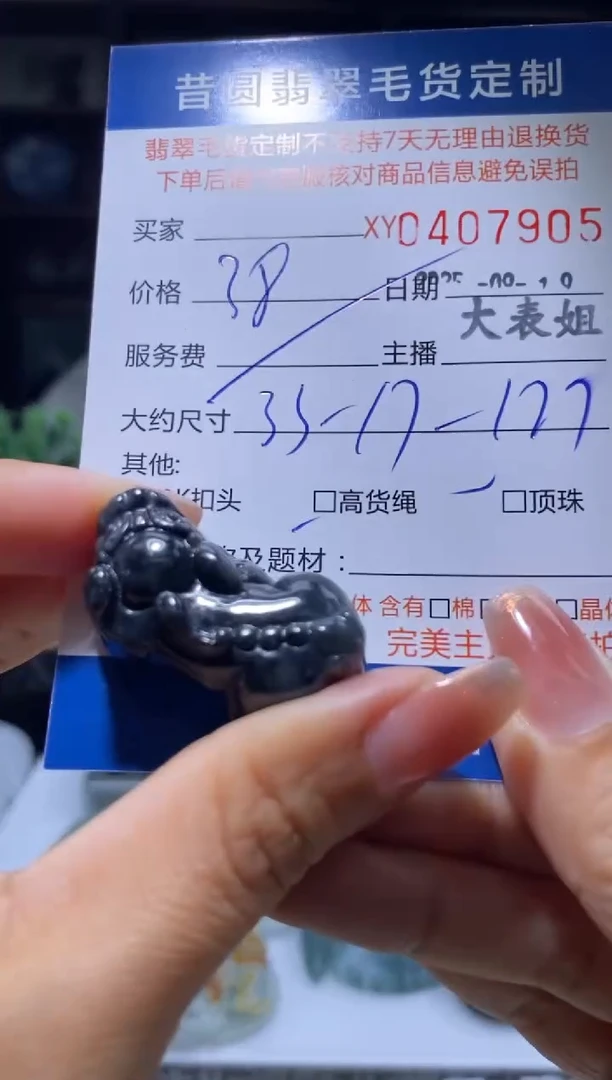 昔圆翡翠毛货定制
翡翠毛货定制不支持7天无理由退换货
下单后 核对商品信息避免误拍
买家 XY0407905
价格 38 日期
大表姐
服务费 主播
大约尺寸 35-17-177
其他:
扣头 □高货绳 □顶珠
及题材:
体 含有□棉 □晶体
完美主